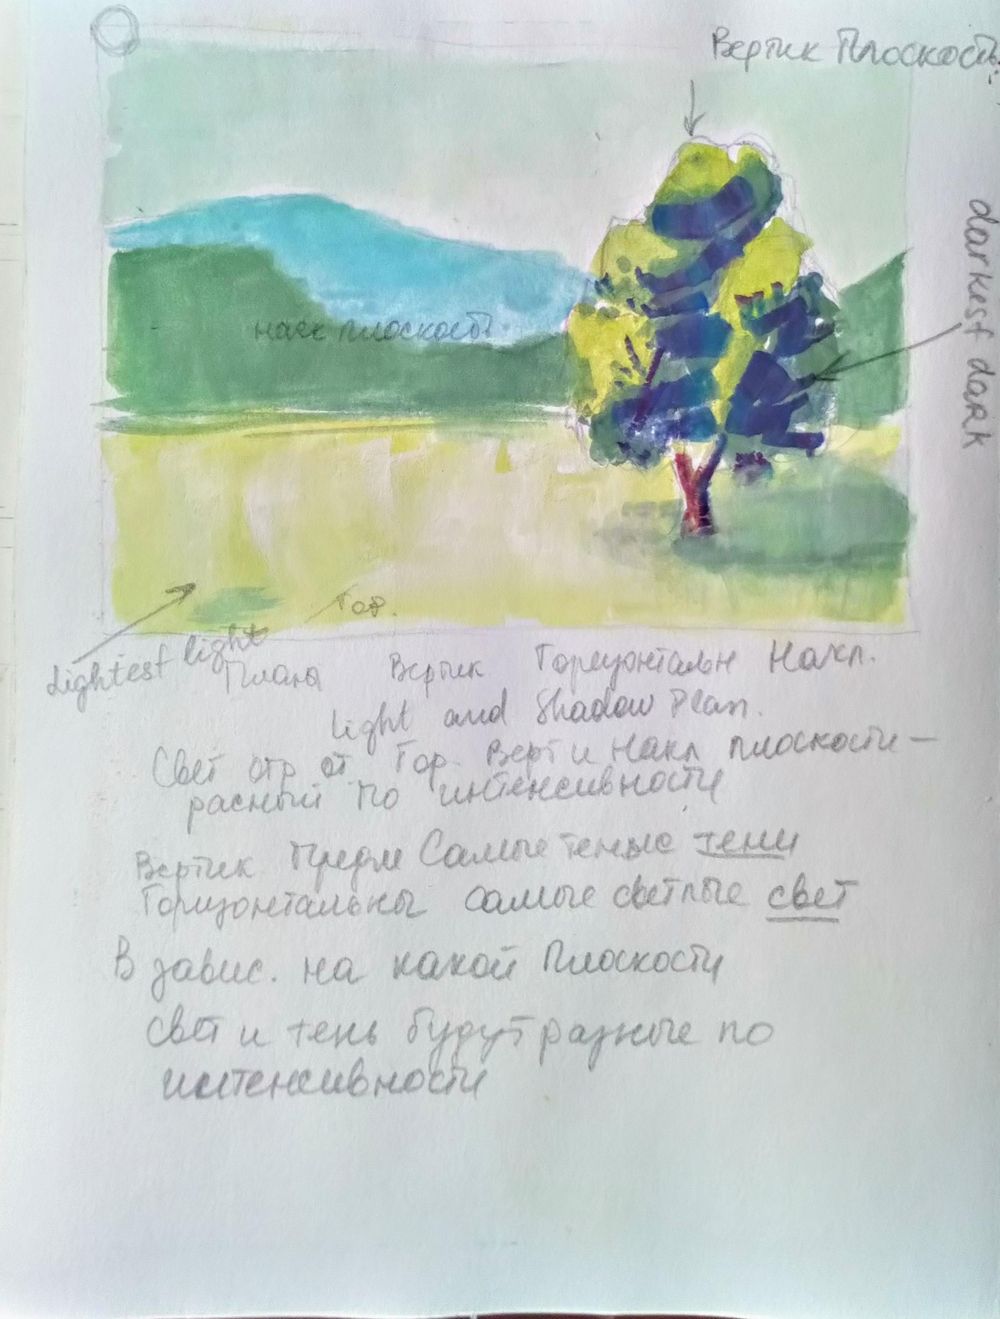 Вертик Плоскость
darkest dark
накл плоскость
Гор.
Lightest light
Планы Вертик Горизонтальн Накл.
light and Shadow Plan.
Свет отр от Гор. Верт и Накл плоскости —
разный по интенсивности
Вертик Предм Самые темные тени
Горизонтальны самые светлые свет
В завис. на какой Плоскости
свет и тень будут разные по
интенсивности